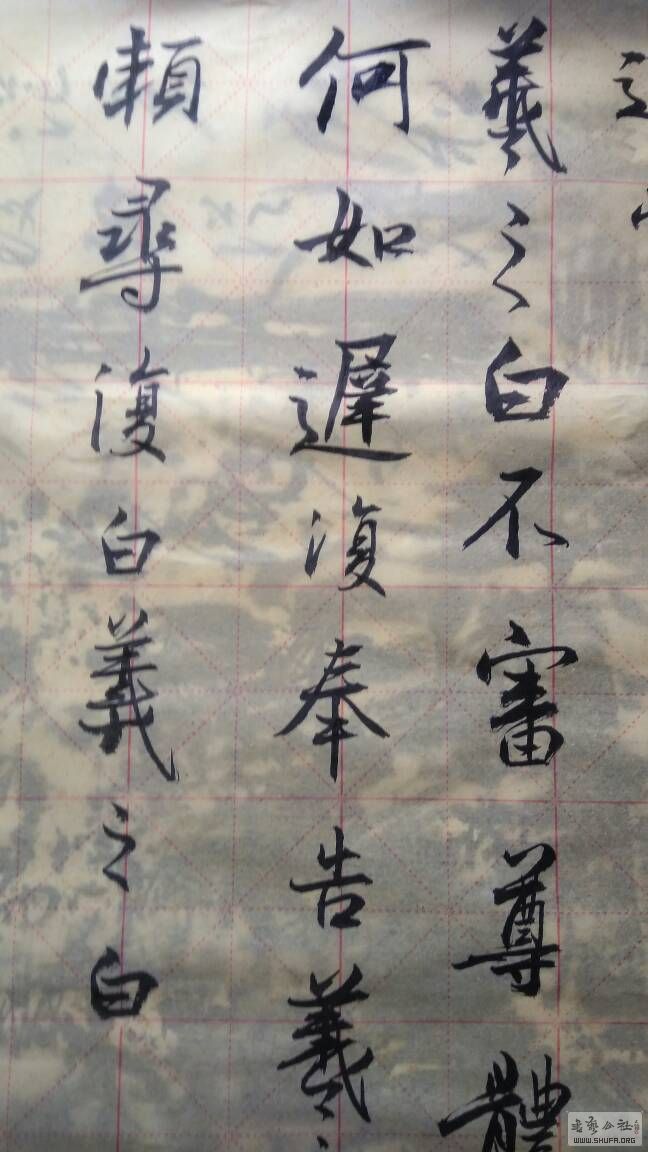 羲之白不審尊體
何如遲復奉告羲
頓尋復白羲之白
书艺公社
WWW.SHUFA.ORG